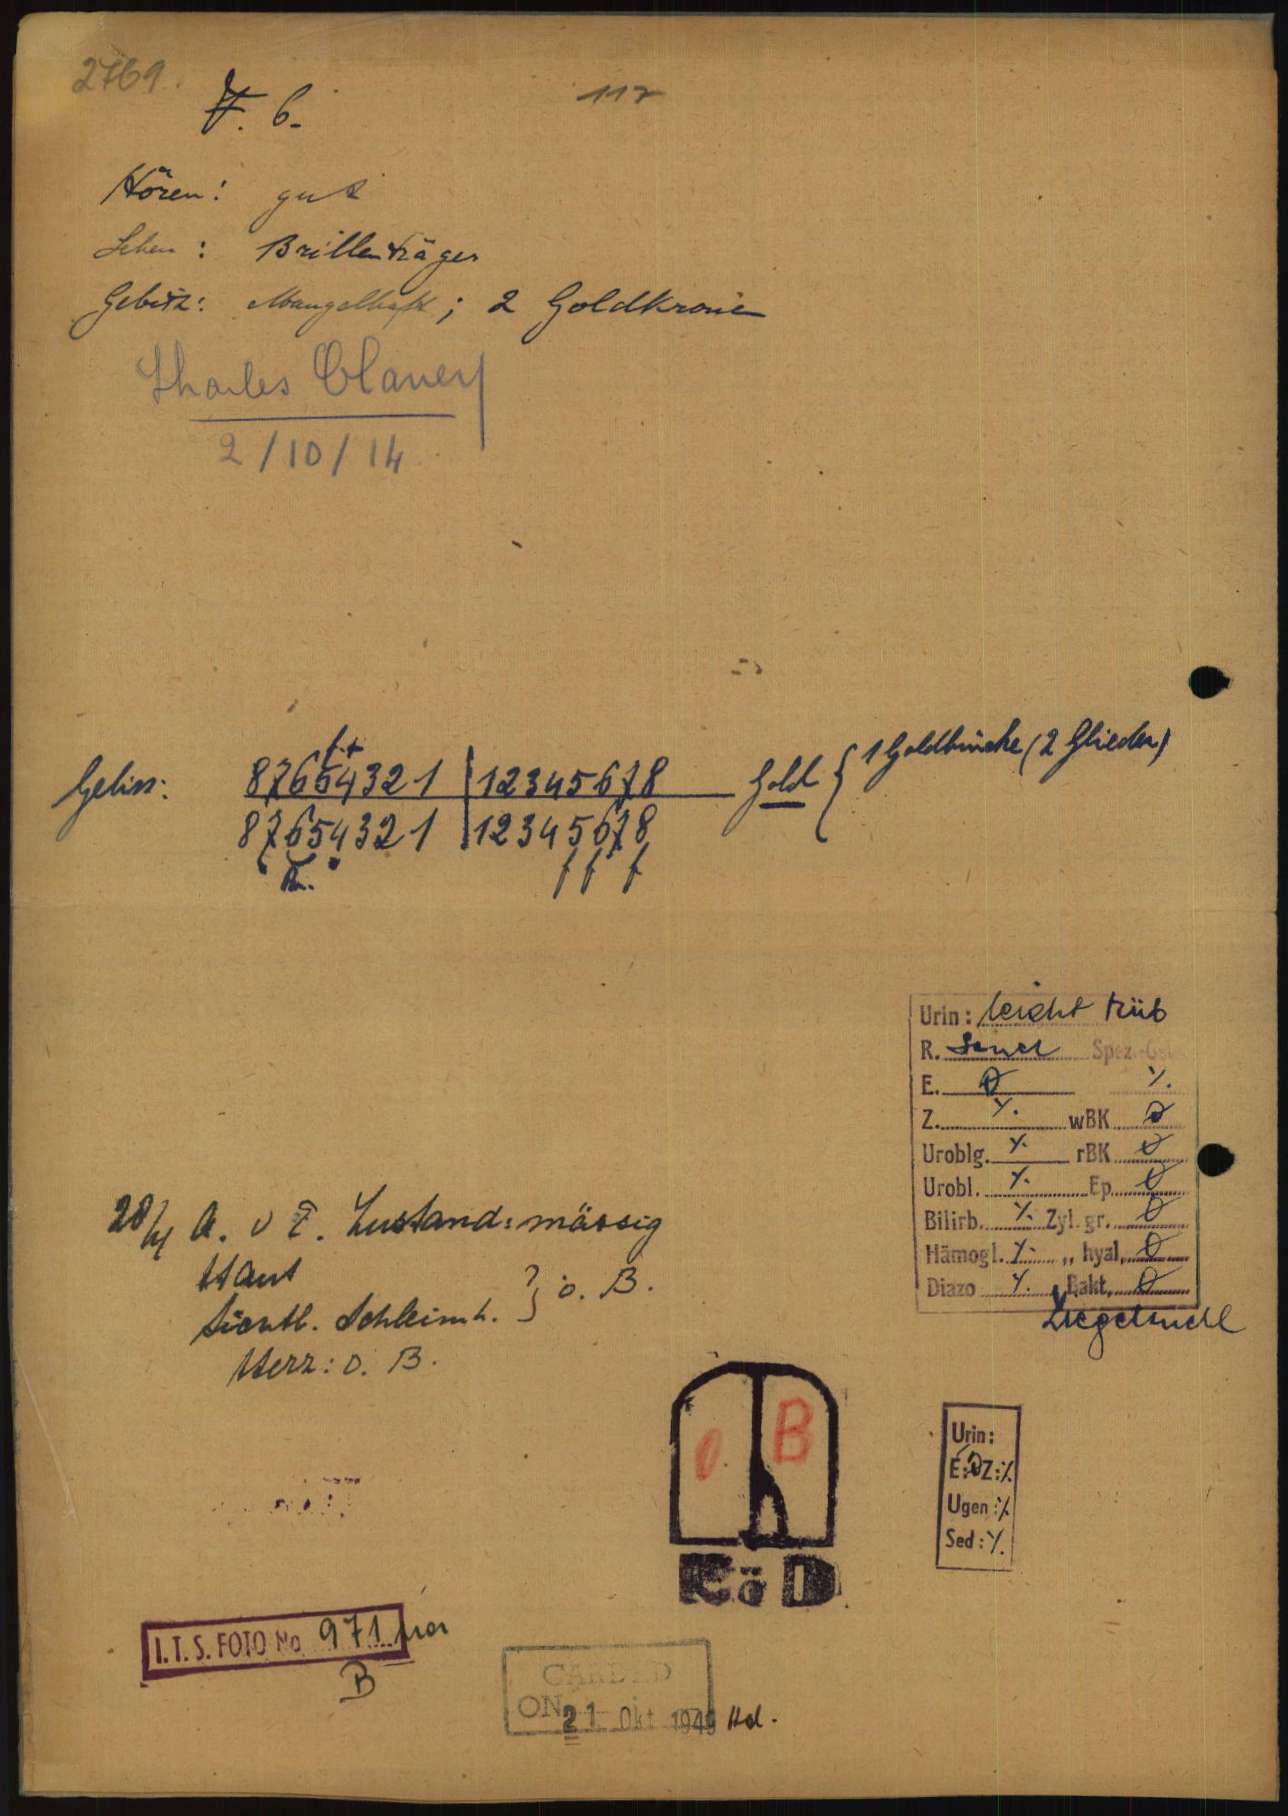 2769.
V. 6.
117
Hören: gut
Sehen: Brillenträger
Gebiss: Mangelhaft; 2 Goldkronen
Charles Claney
2/10/14
f +
Gebiss: 87654321 | 12345678 Gold { 1 Goldbrücke (2 Glieder)
87654321 | 12345678
f f f
Urin: leicht trüb
R. sauer Spez.-Gew.
E. Ø ⁒
Z. ⁒ wBK Ø
Uroblg. ⁒ rBK Ø
Urobl. ⁒ Ep. Ø
Bilirb. ⁒ Zyl. gr. Ø
Hämogl. ⁒ „ hyal. Ø
Diazo ⁒ Bakt. Ø
Ziegelmehl
28/4 A. u E. Zustand: mässig
Haut
Sichtl. Schleimh. } o. B.
Herz: o. B.
O B
KöD
Urin:
E: Ø Z: ⁒
Ugen: ⁒
Sed: ⁒
I.T.S. FOTO No 971
B
CARDED
ON 21. Okt 1949 Hd.